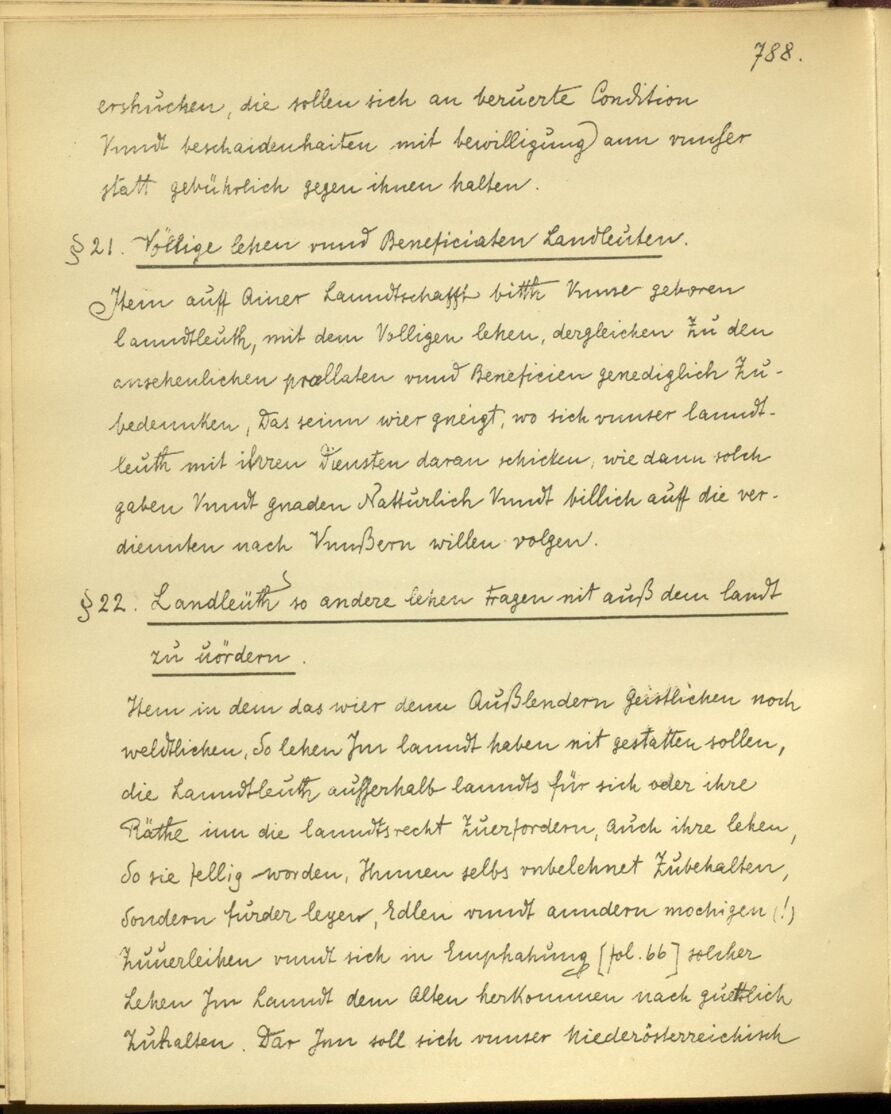 788.
ersuchen, die sollen sich an beruerte Condition
Vnndt beschaidenhaiten mit bewilligung) ann vnnser
statt gebührlich gegen ihnen halten.
§ 21. Völlige lehen vnnd Beneficiaten Landleuten.
Item auff Ainer Lanndtschafft bitth Vnnse geboren
lanndtleuth, mit dem Volligen lehen, dergleichen Zu den
ansehenlichen prællaten vnnd Beneficien genediglich Zu-
bedennken, Das seinn wier gneigt, wo sich vnnser lanndt-
leuth mit ihrren Diensten daran schicken, wie dann solch
gaben Vnndt gnaden Natturlich Vnndt billich auff die ver-
diennten nach Vnnßern willen volgen.
§ 22. Landleüth so andere lehen tragen nit auß dem landt
zu uördern.
Item in dem das wier denn Außlendern geistlichen noch
weldtlichen, So lehen Im lanndt haben nit gestatten sollen,
die Lanndtleuth ausserhalb lanndts für sich oder ihre
Räthe inn die lanndtsrecht Zuerfordern, Auch ihre lehen,
So sie fellig worden, Ihnnen selbs vnbelehnet Zubehalten,
Sondern fürder leyen, Edlen vnndt anndern mochigen (!)
Zuuerleihen vnndt sich in Emphahung [fol. 66] solcher
Lehen Im Lanndt dem Alten herkommen nach guettlich
Zuhalten. Dar Inn soll sich vnnser Niederösterreichisch